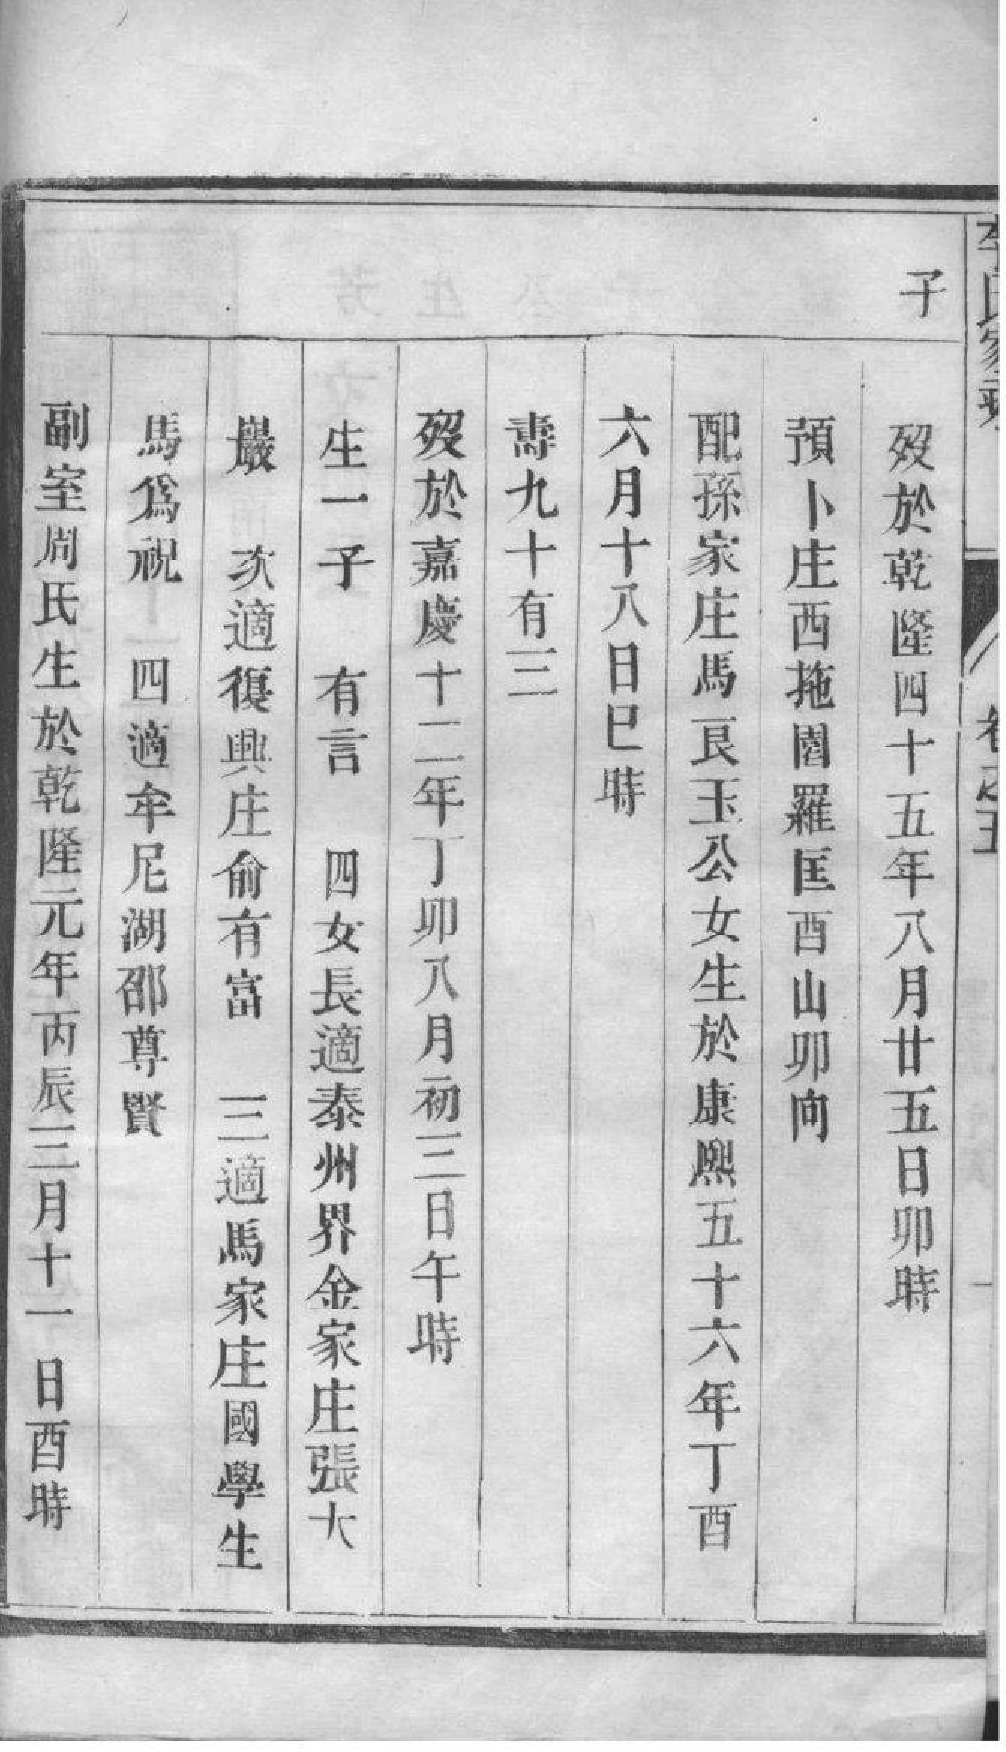 李氏家乘
卷之五
子
歿於乾隆四十五年八月廿五日卯時
預卜庄西拖圊羅匡酉山卯向
配孫家庄馬良玉公女生於康熙五十六年丁酉
六月十八日巳時
壽九十有三
歿於嘉慶十二年丁卯八月初三日午時
生一子 有言 四女長適泰州界金家庄張大
巖 次適復興庄俞有富 三適馬家庄國學生
馬爲祝 四適牟尼湖邵尊賢
副室周氏生於乾隆元年丙辰三月十一日酉時